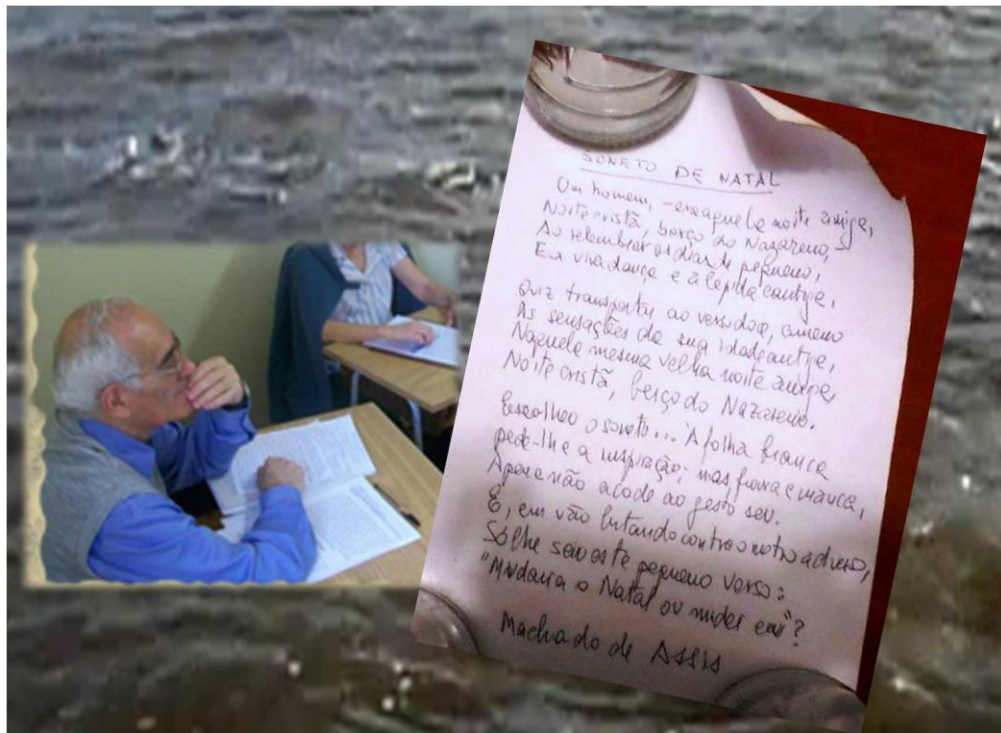 SONETO DE NATAL
Um homem, – era aquela noite amiga,
Noite cristã, berço do Nazareno, –
Ao relembrar os dias de pequeno,
E a viva dança, e a lépida cantiga,
Quiz transportar ao verso doce, ameno
As sensações da sua idade antiga,
Naquela mesma velha noite amiga,
Noite cristã, berço do Nazareno.
Escolheu o soneto... A folha branca
pede-lhe a inspiração; mas frouxa e manca,
A pena não acode ao gesto seu.
E, em vão lutando contra o metro adverso,
Só lhe saiu este pequeno verso:
"Mudaria o Natal ou mudei eu"?
Machado de Assis